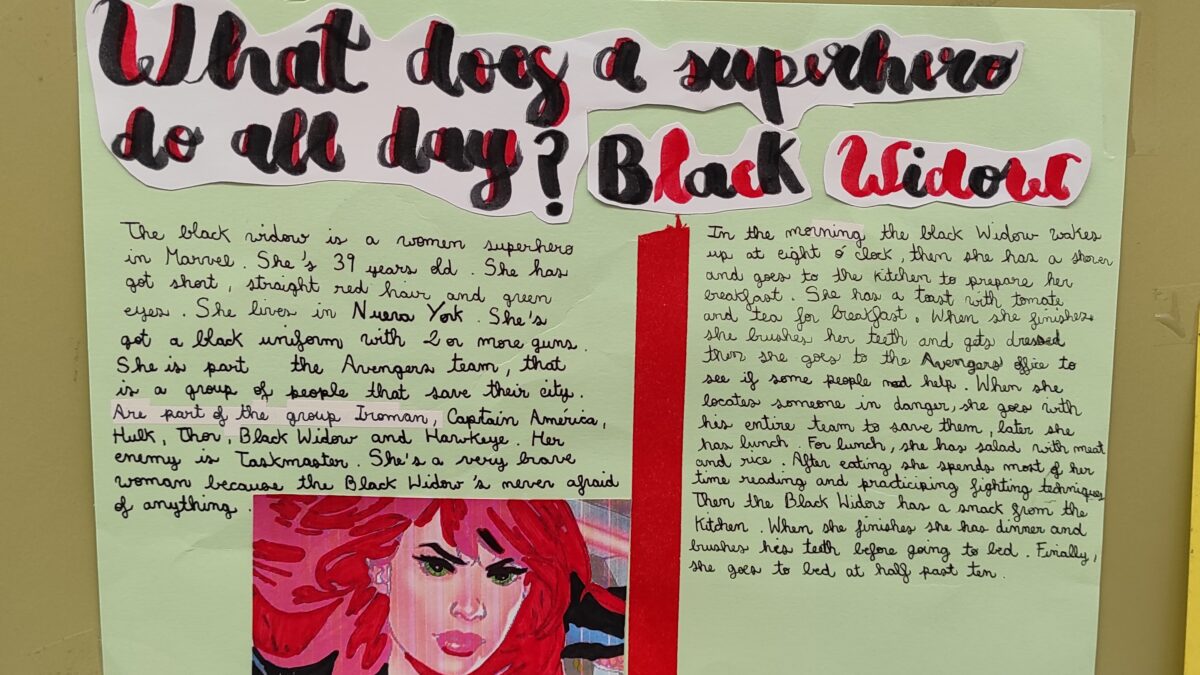 What does a superhero
do all day? Black Widow
The black widow is a women superhero
in Marvel. She's 39 years old. She has
got short, straight red hair and green
eyes. She lives in Nueva York. She's
got a black uniform with 2 or more guns.
She is part the Avengers team, that
is a group of people that save their city.
Are part of the group Ironman, Captain América,
Hulk, Thor, Black Widow and Hawkeye. Her
enemy is Taskmaster. She's a very brave
woman because the Black Widow's never afraid
of anything.
In the morning the black Widow wakes
up at eight o'clock, then she has a shower
and goes to the kitchen to prepare her
breakfast. She has a toast with tomate
and tea for breakfast. When she finishes
she brushes her teeth and gets dressed
then she goes to the Avengers office to
see if some people need help. When she
locates someone in danger, she goes with
his entire team to save them, later she
has lunch. For lunch, she has salad with meat
and rice. After eating she spends most of her
time reading and practicing fighting techniques.
Then the Black Widow has a snack from the
kitchen. When she finishes she has dinner and
brushes his teeth before going to bed. Finally,
she goes to bed at half past ten.